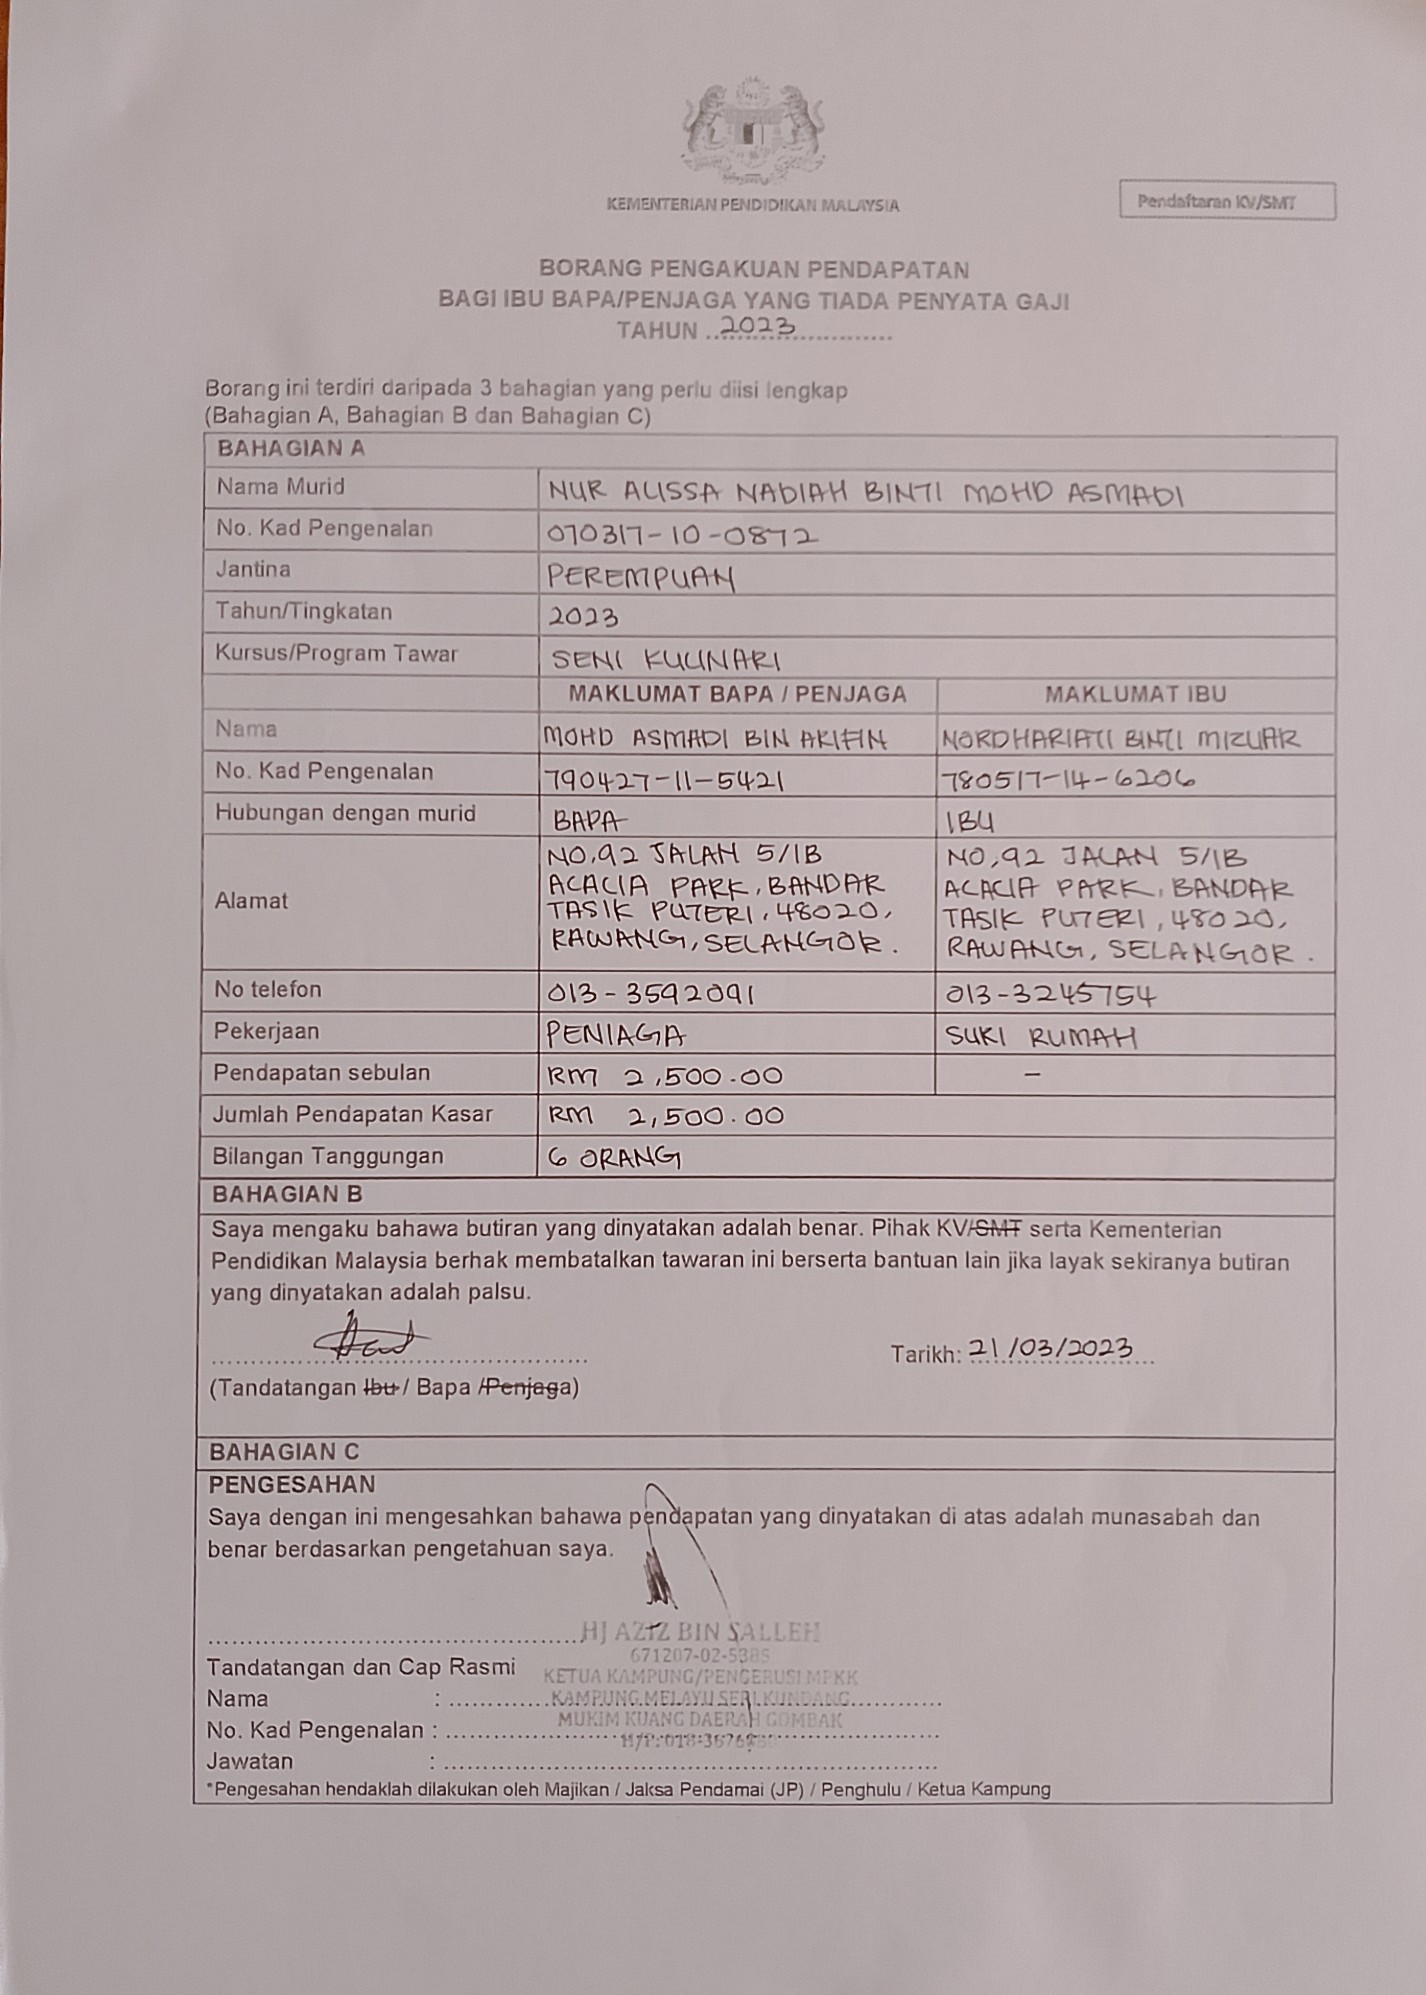 KEMENTERIAN PENDIDIKAN MALAYSIA
Pendaftaran KV/SMT
BORANG PENGAKUAN PENDAPATAN
BAGI IBU BAPA/PENJAGA YANG TIADA PENYATA GAJI
TAHUN ..2023..............
Borang ini terdiri daripada 3 bahagian yang perlu diisi lengkap
(Bahagian A, Bahagian B dan Bahagian C)
BAHAGIAN A
Nama Murid NUR ALISSA NADIAH BINTI MOHD ASMADI
No. Kad Pengenalan 070317-10-0872
Jantina PEREMPUAN
Tahun/Tingkatan 2023
Kursus/Program Tawar SENI KULINARI
MAKLUMAT BAPA / PENJAGA MAKLUMAT IBU
Nama MOHD ASMADI BIN ARIFIN NORDHARIATI BINTI MIZUAR
No. Kad Pengenalan 790427-11-5421 780517-14-6206
Hubungan dengan murid BAPA IBU
Alamat
NO,92 JALAN 5/1B NO,92 JALAN 5/1B
ACACIA PARK, BANDAR ACACIA PARK, BANDAR
TASIK PUTERI, 48020, TASIK PUTERI, 48020,
RAWANG, SELANGOR. RAWANG, SELANGOR.
No telefon 013-3592091 013-3245754
Pekerjaan PENIAGA SURI RUMAH
Pendapatan sebulan RM 2,500.00 –
Jumlah Pendapatan Kasar RM 2,500.00
Bilangan Tanggungan 6 ORANG
BAHAGIAN B
Saya mengaku bahawa butiran yang dinyatakan adalah benar. Pihak KV/SMT serta Kementerian
Pendidikan Malaysia berhak membatalkan tawaran ini berserta bantuan lain jika layak sekiranya butiran
yang dinyatakan adalah palsu.
Tarikh: 21/03/2023
(Tandatangan Ibu / Bapa /Penjaga)
BAHAGIAN C
PENGESAHAN
Saya dengan ini mengesahkan bahawa pendapatan yang dinyatakan di atas adalah munasabah dan
benar berdasarkan pengetahuan saya.
HJ AZIZ BIN SALLEH
671207-02-5385
Tandatangan dan Cap Rasmi KETUA KAMPUNG/PENGERUSI MPKK
Nama : KAMPUNG MELAYU SERI KUNDANG
MUKIM KUANG DAERAH GOMBAK
No. Kad Pengenalan :
Jawatan :
*Pengesahan hendaklah dilakukan oleh Majikan / Jaksa Pendamai (JP) / Penghulu / Ketua Kampung